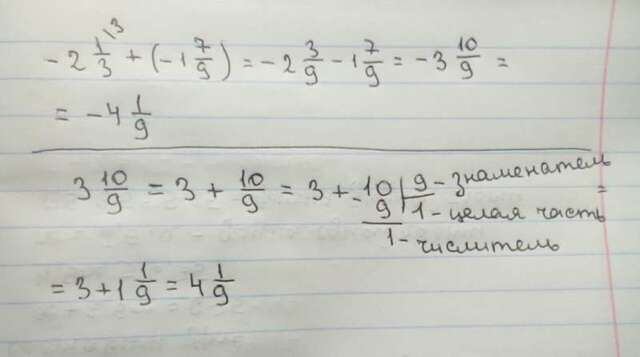 -2 1/3 \3 + (-1 7/9) = -2 3/9 - 1 7/9 = -3 10/9 =
= -4 1/9
3 10/9 = 3 + 10/9 = 3 + -10 | 9 - знаменатель =
9 | 1 - целая часть
1 - числитель
= 3 + 1 1/9 = 4 1/9